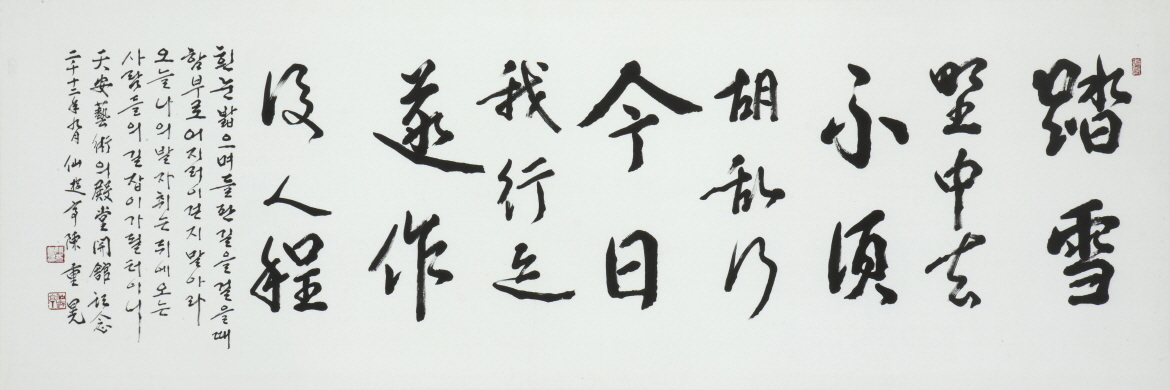 踏雪
野中去
不須
胡乱行
今日
我行迹
遂作
後人程
흰눈밟으며들한길을걸을때
함부로어지러이걷지말아라
오늘나의발자취는뒤에오는
사람들의길잡이가될터이니
天安藝術의殿堂開館記念
二千十二年九月 仙遊 陳重晃